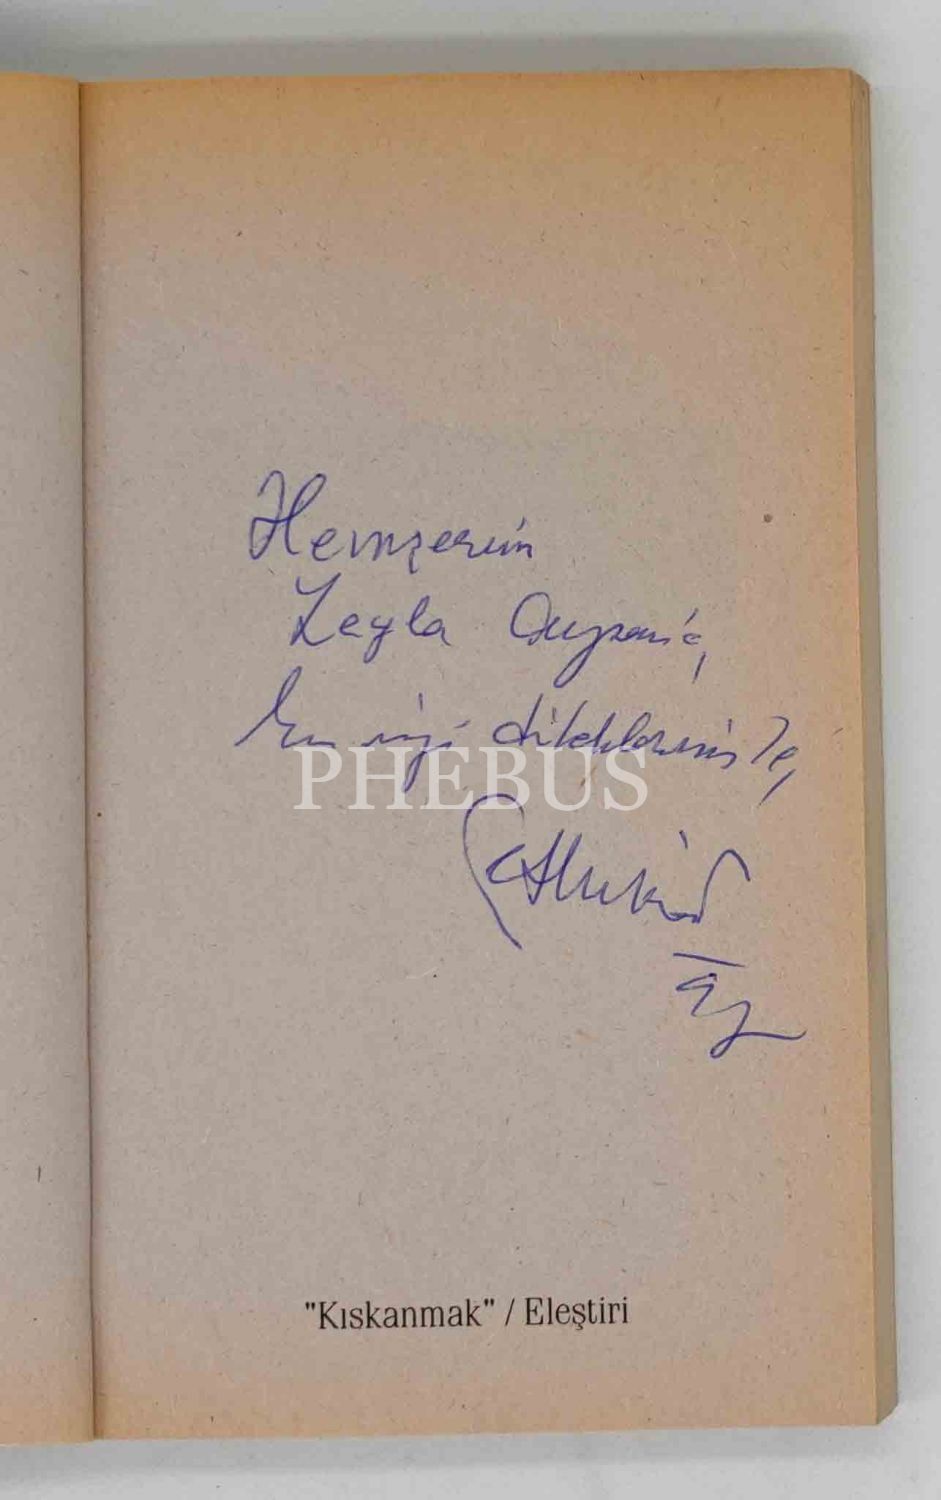 Hemşerim
Leyla
En iyi dileklerimle,
PHEBUS
"Kıskanmak" / Eleştiri